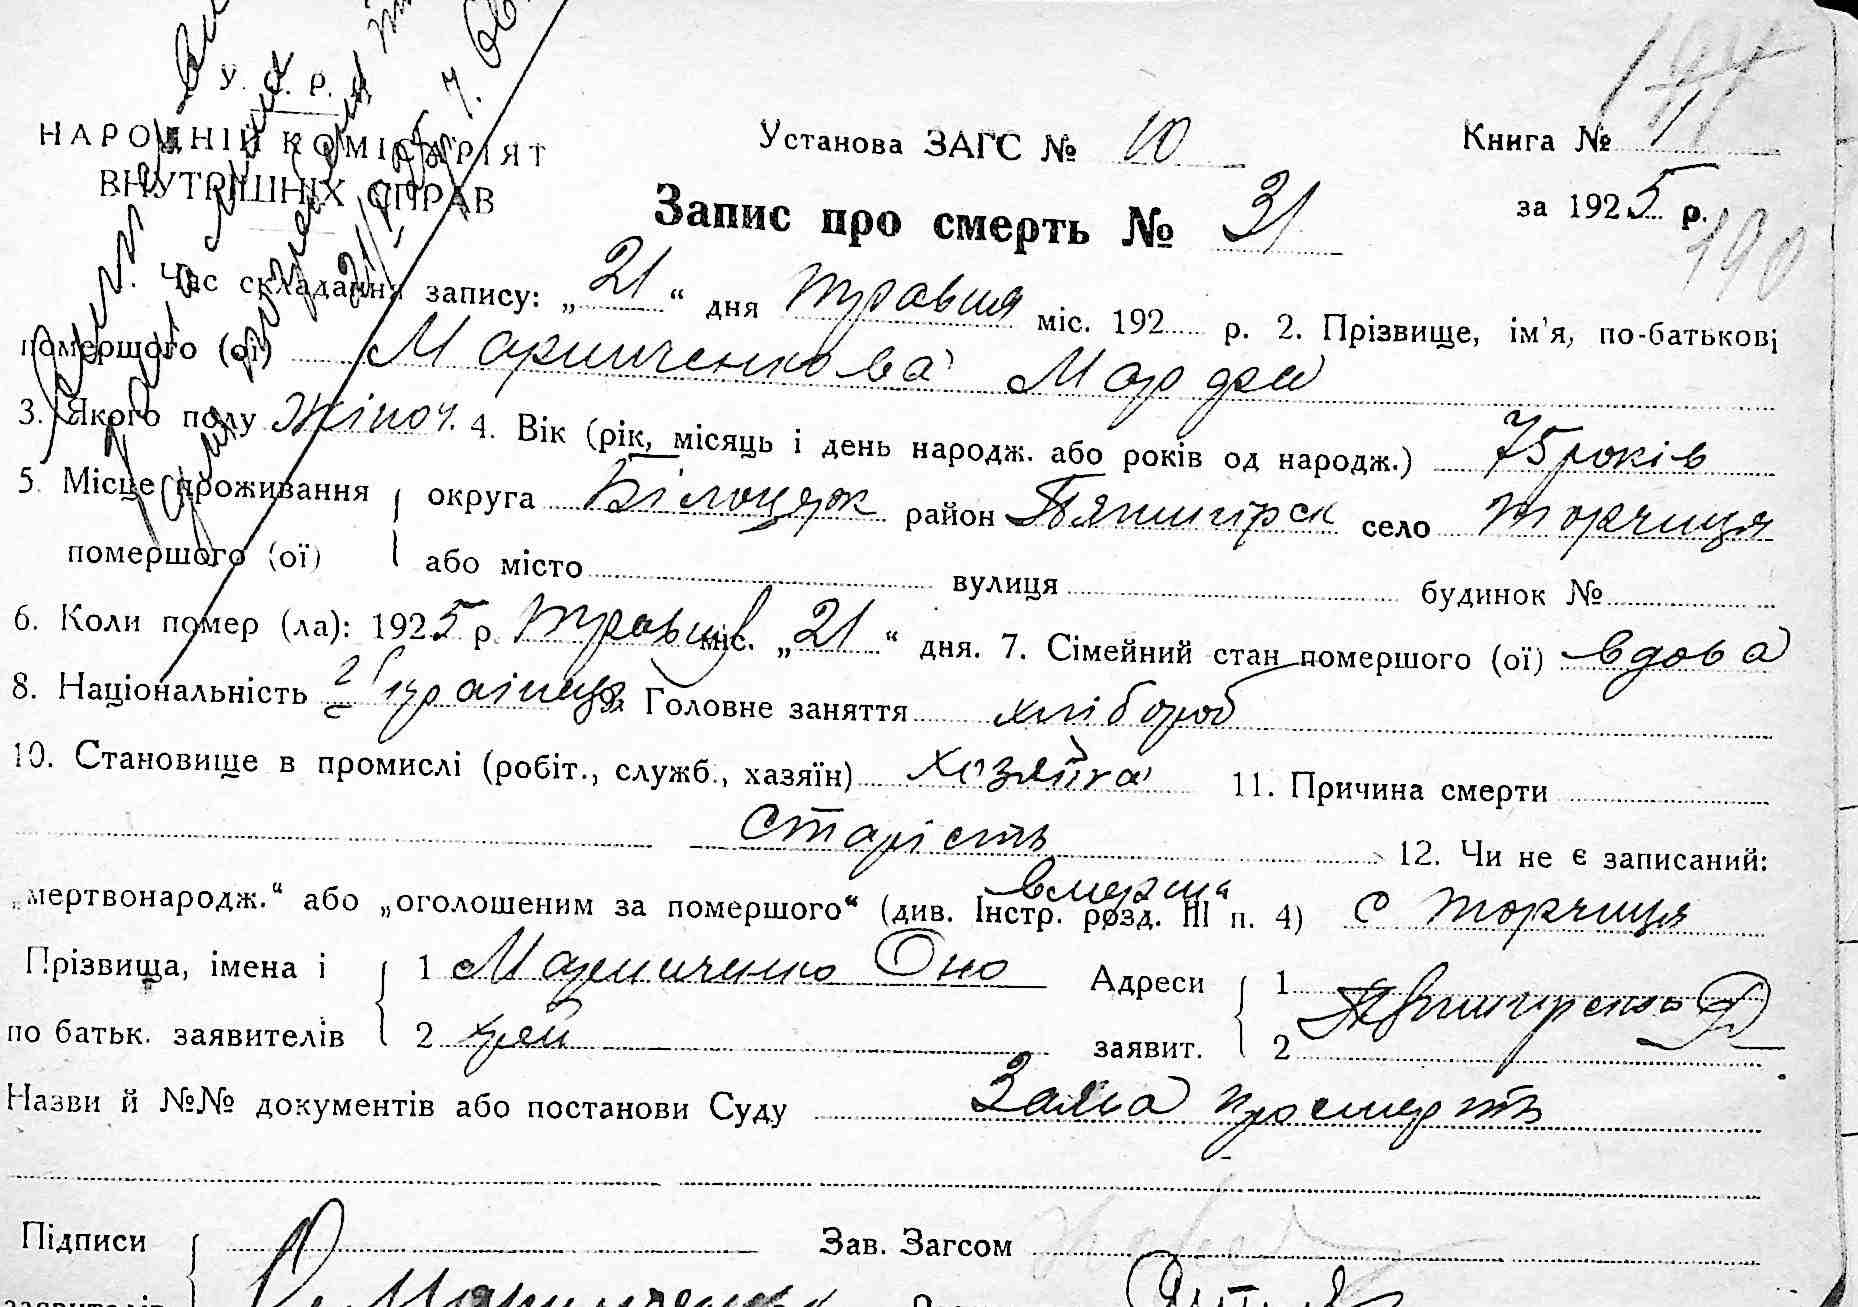 У. С. Р.
НАРОДНІЙ КОМІСАРІЯТ
ВНУТРІШНІХ СПРАВ
Установа ЗАГС № 10
Книга № 1
за 1925 р.
190
Запис про смерть № 31
1. Час складання запису: „21“ дня травня міс. 192 р. 2. Прізвище, ім’я, по-батькові
померщого (ої) Маринченкова
3. Якого полу жіноч. 4. Вік (рік, місяць і день народж. або років од народж.) 75 років
5. Місце проживання помершого (ої) округа Білоцерк район Пятигірск село Торчиця
або місто вулиця будинок №
6. Коли помер (ла): 1925 р. травня міс. „21“ дня. 7. Сімейний стан помершого (ої) вдова
8. Національність Українца 9. Головне заняття хлібороб
10. Становище в промислі (робіт., служб., хазяїн) хозяйка 11. Причина смерти
старість 12. Чи не є записаний:
вмерша
„мертвонародж.“ або „оголошеним за помершого“ (див. Інстр. розд. III п. 4) с Торчиця
Прізвища, імена і 1 Маринченко Оно Адреси 1
по батьк. заявителів 2 прей заявит. 2 Пятигірского Р
Назви й №№ документів або постанови Суду Заява про смерть
Підписи Зав. Загсом
заявителів Маринченко